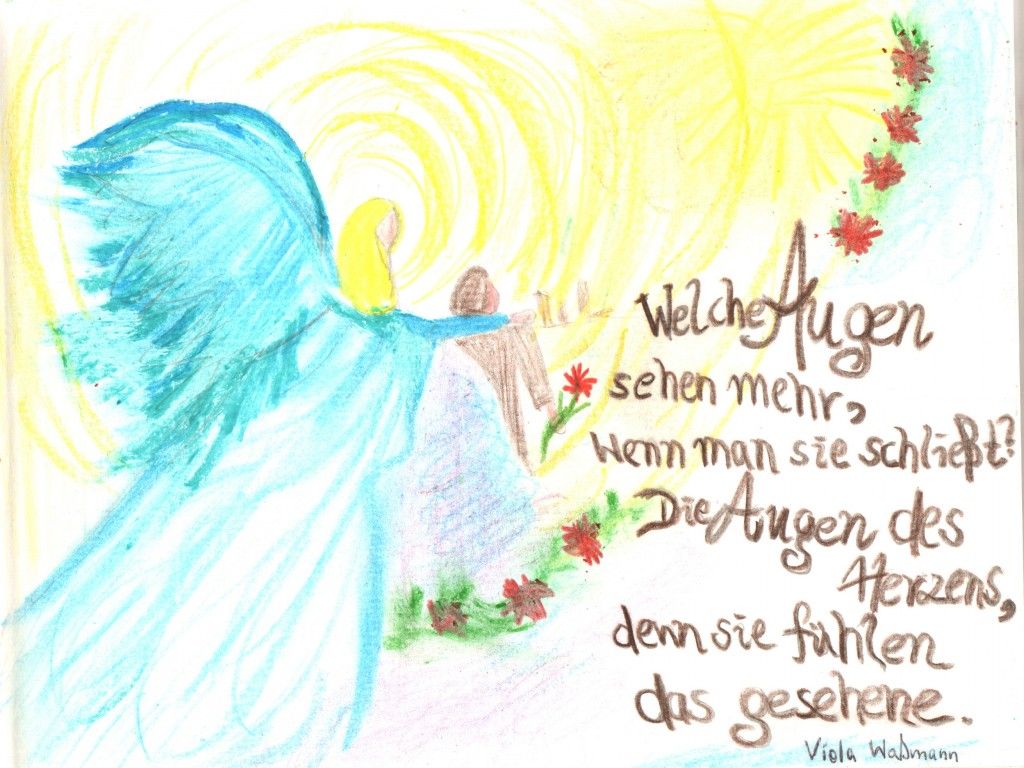 Welche Augen
sehen mehr,
wenn man sie schließt?
Die Augen des
Herzens,
denn sie fühlen
das gesehene.
Viola Waßmann